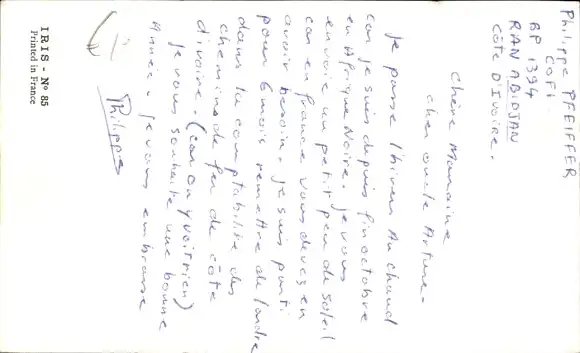 Philippe PFEIFFER
COFI
BP 1394
RAN ABIDJAN
CÔTE D'IVOIRE.
Chère Marraine
cher oncle Arture.
Je passe l'hiver Au chaud
car je suis depuis fin octobre
en Afrique Noire. Je vous
envoie un petit peu de soleil
car en france vous devez en
avoir besoin. Je suis parti
pour 6 mois remettre de l'ordre
dans la comptabilité des
chemins de fer de côte
d'ivoire. (car on y voit rien)
Je vous souhaite une bonne
Année. Je vous embrasse
Philippe
IRIS - No 85
Printed in France